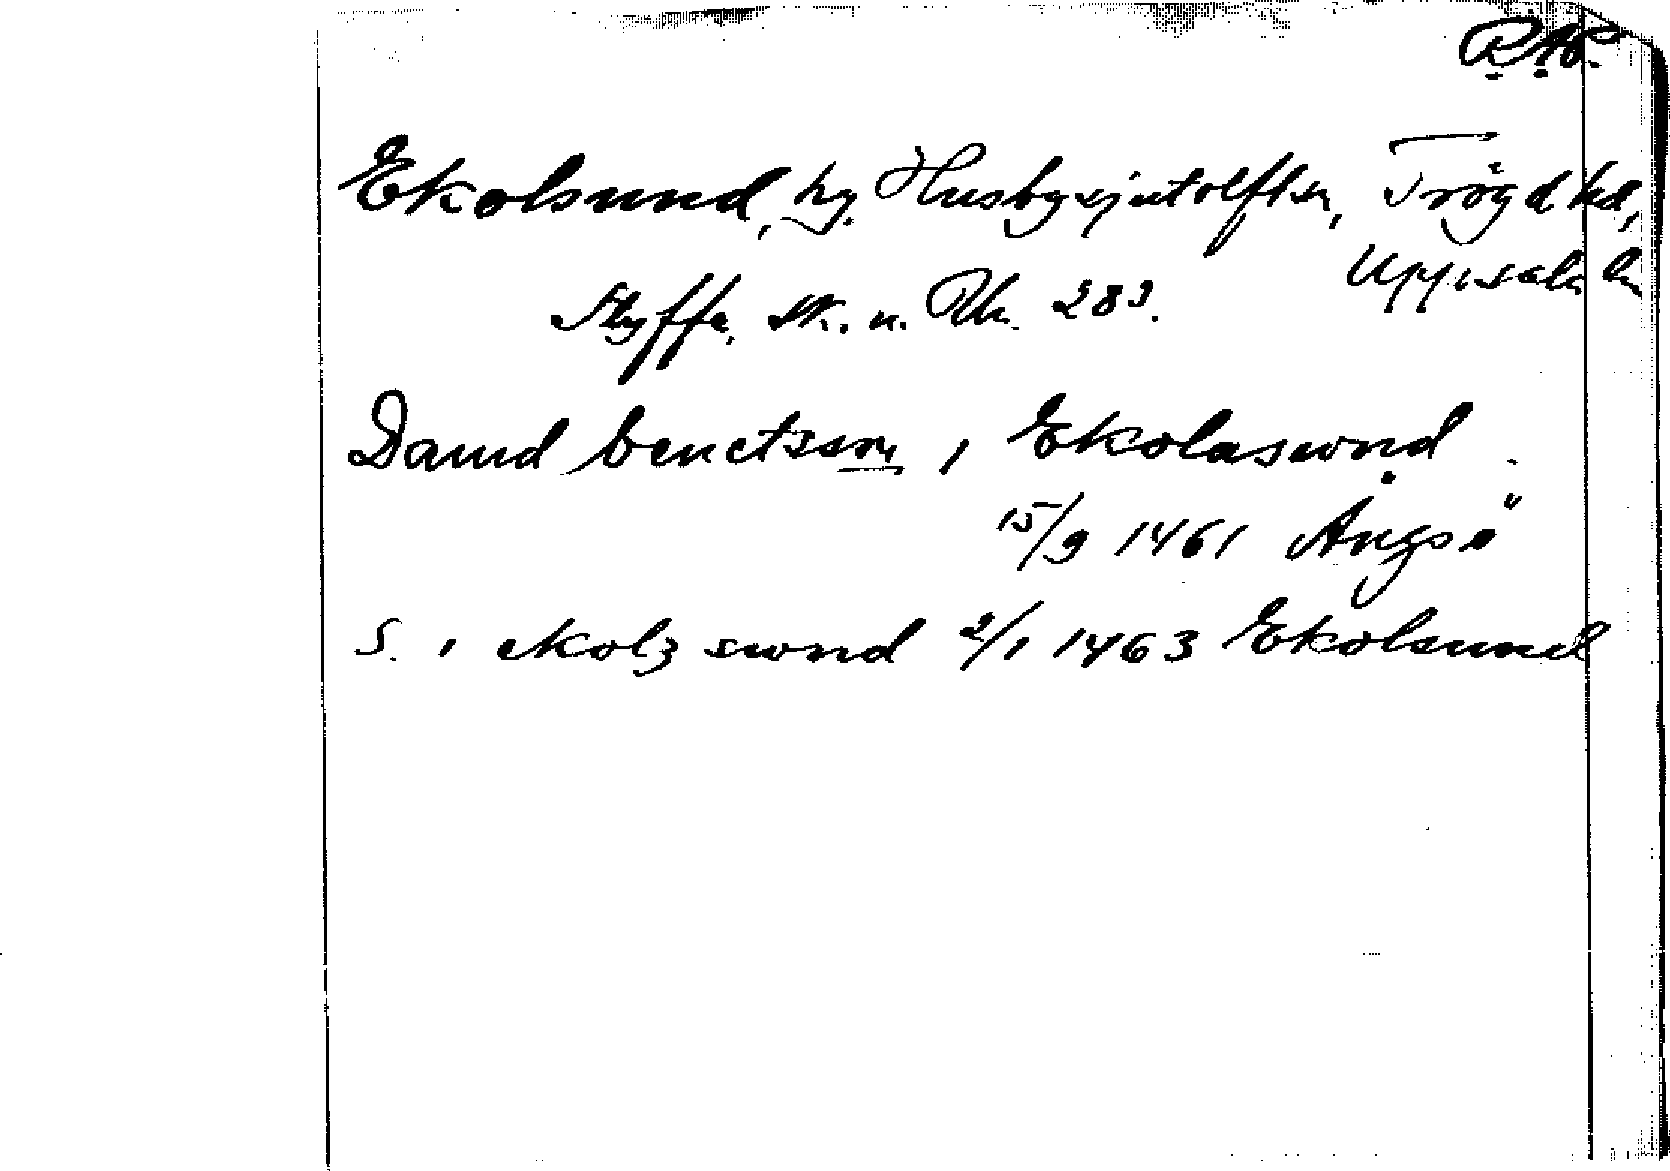 R.Ap.
Ekolsund, hg. Husbysjutolft sn, Trögd hd,
Uppsala ln
Styffe, Sk. u. Ut. 283.
Dauid benctsson i Ekolasund
15/9 1461 Ängsö
S. i ekolz swnd 2/1 1463 Ekolsund